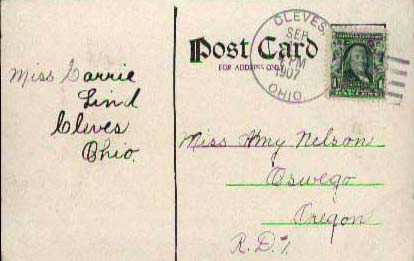 Post Card
FOR ADDRESS ONLY
CLEVES,
SEP
PM
1907
OHIO
1 1
Miss Carrie
Lind
Cleves
Ohio.
Miss Amy Nelson
Oswego
Oregon
R.D.1.